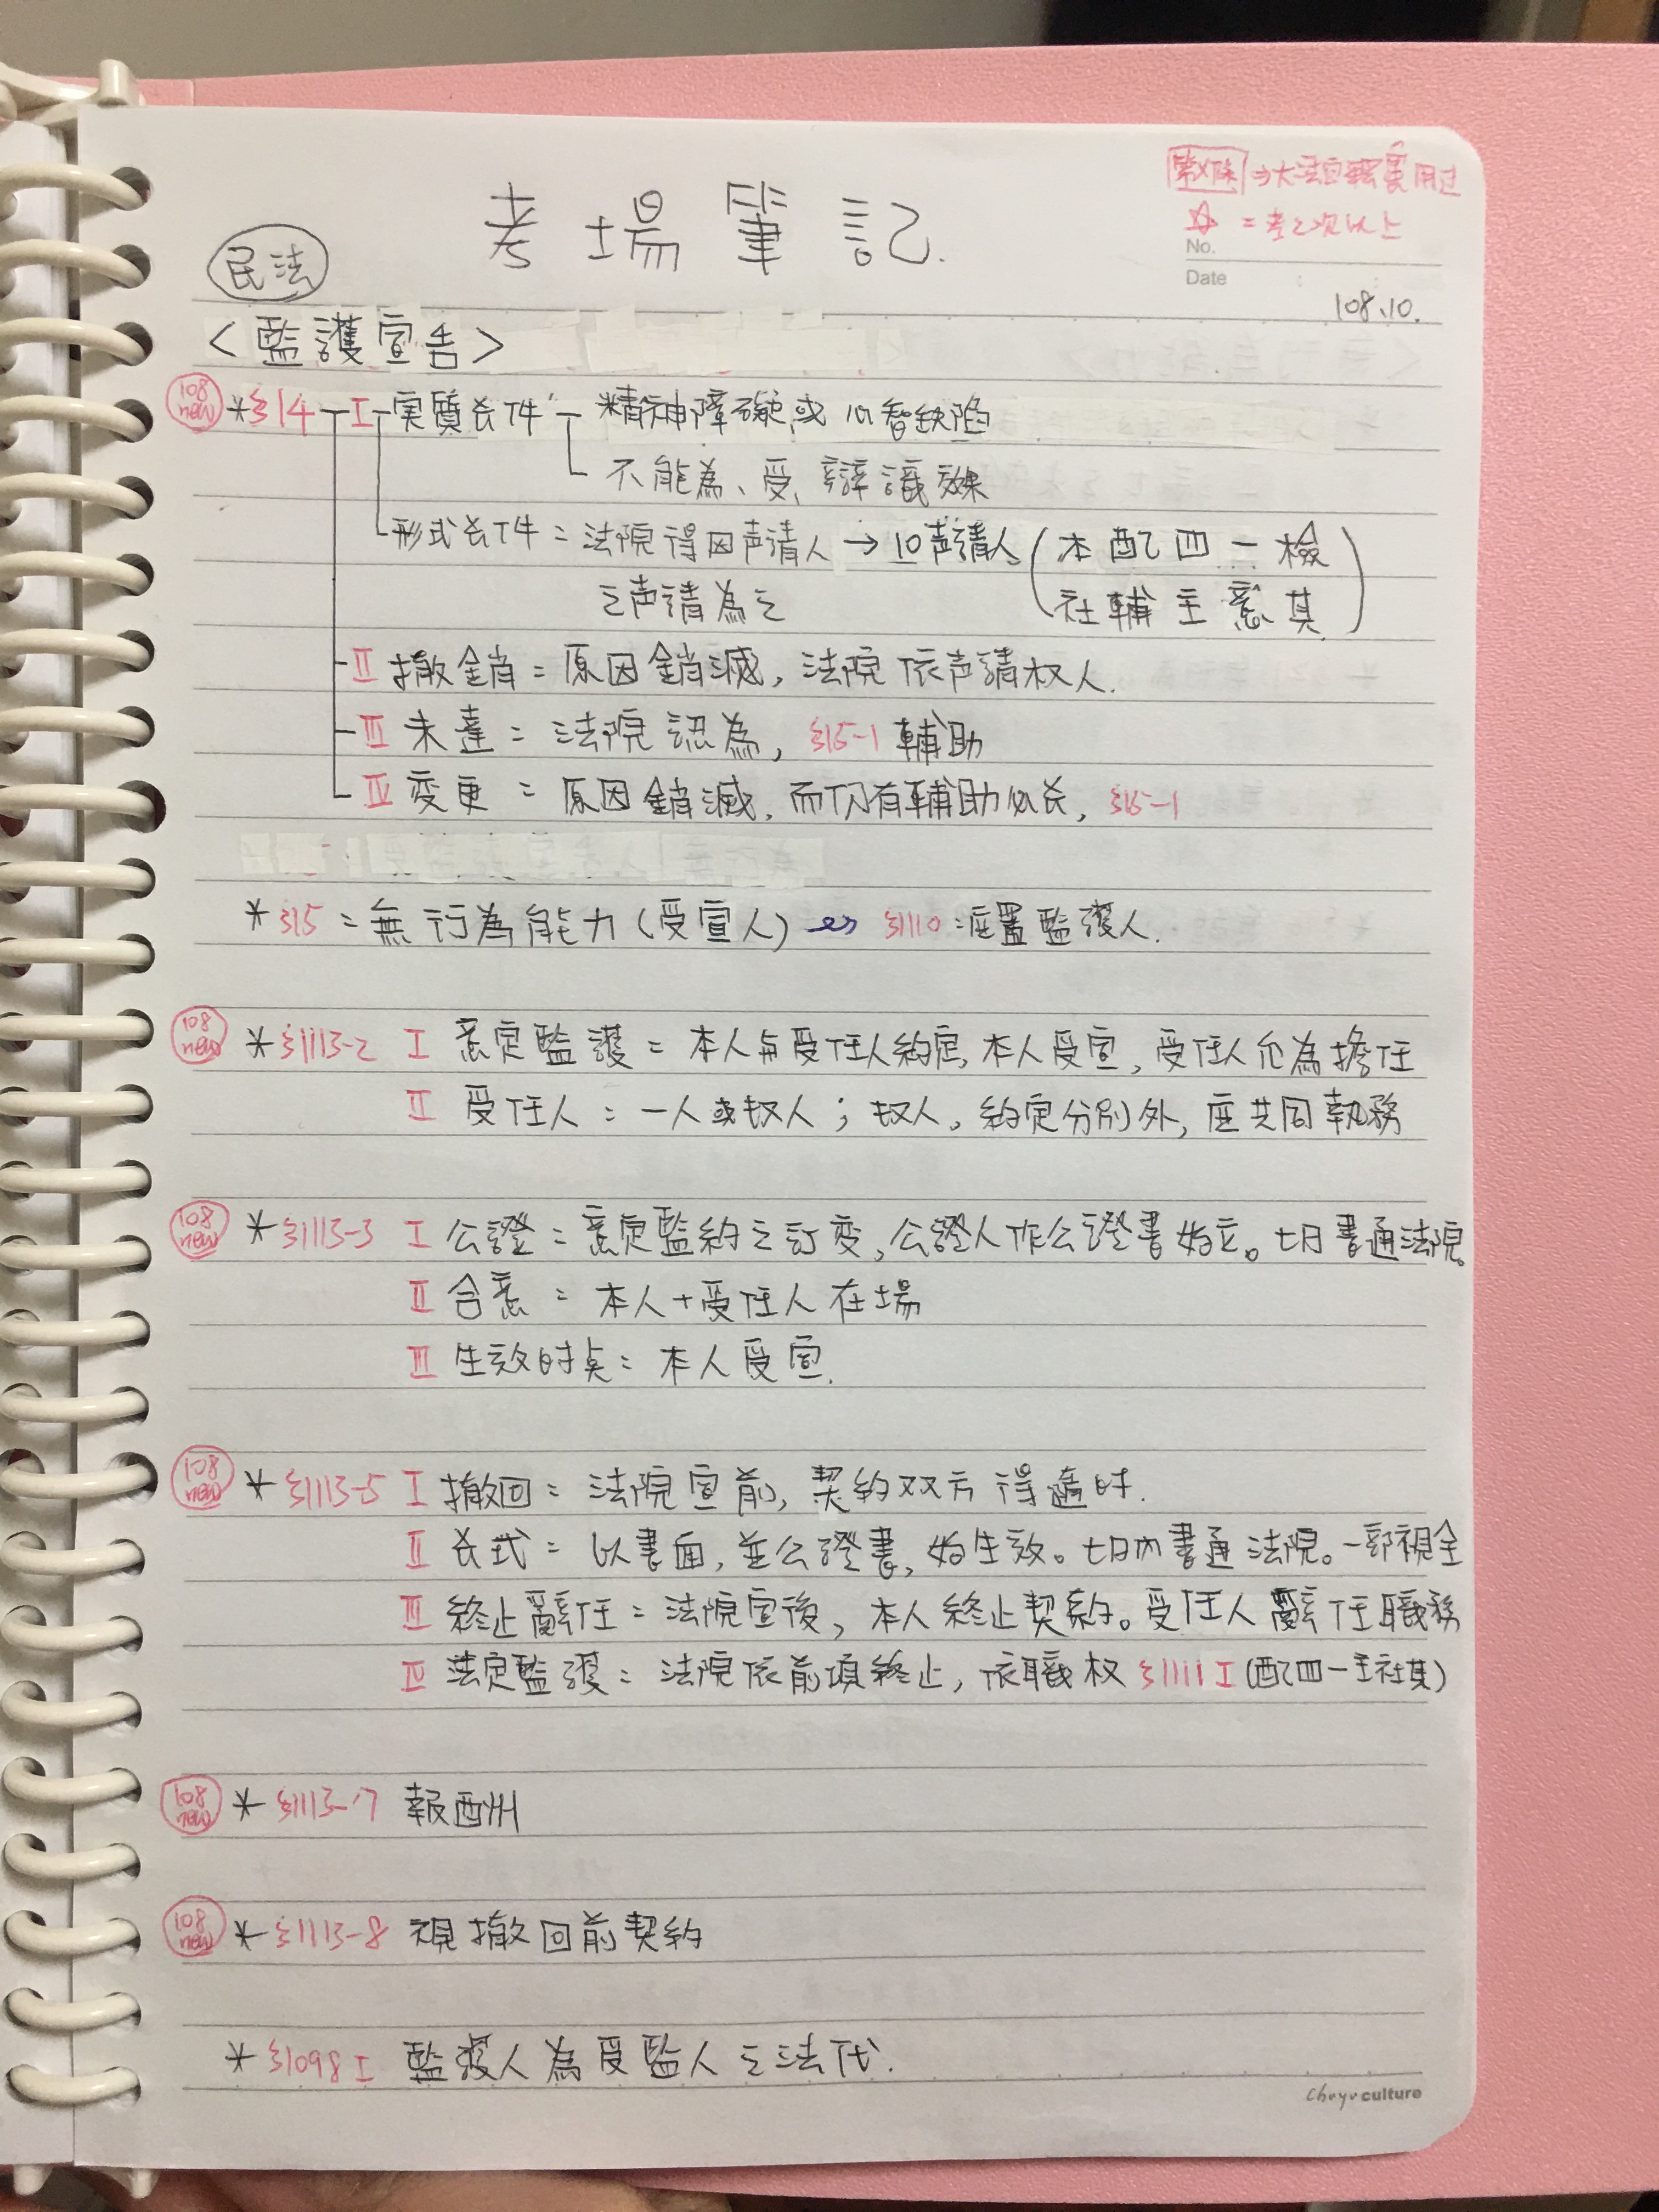 第X條 ⇒大法官釋憲用过
☆ =考2次以上
考場筆記.
No.
民法
Date
108.10.
<監護宣告>
108 new *§14 I 実質要件 精神障礙或心智缺陷
不能為、受、辯識效果
形式要件=法院得因声請人→10声請人(本配四一檢
之声請為之 社輔主意其)
II 撤銷=原因銷滅,法院依声請权人.
III 未達=法院認為, §15-1 輔助
IV 変更=原因銷滅,而仍有輔助必要, §15-1
*§15=無行為能力(受宣人) ↔ §1110:應置監護人.
108 new *§1113-2 I 意定監護=本人與受任人約定,本人受宣,受任人允為擔任
II 受任人=一人或数人;数人,約定分別外,應共同執務
108 new *§1113-3 I 公證=意定監約之訂変,公證人作公證書始立。七日書通法院。
II 合意=本人+受任人在場
III 生效时点=本人受宣.
108 new *§1113-5 I 撤回=法院宣前,契約双方得隨时.
II 要式=以書面,並公證書,始生效。七日內書通法院。一部視全
III 終止辭任=法院宣後,本人終止契約。受任人辭任職務
IV 法定監護=法院依前項終止,依職权§1111 I(配四一主社其)
108 new *§1113-7 報酬
108 new *§1113-8 視撤回前契約
*§1098 I 監護人為受監人之法代.
Choyo culture